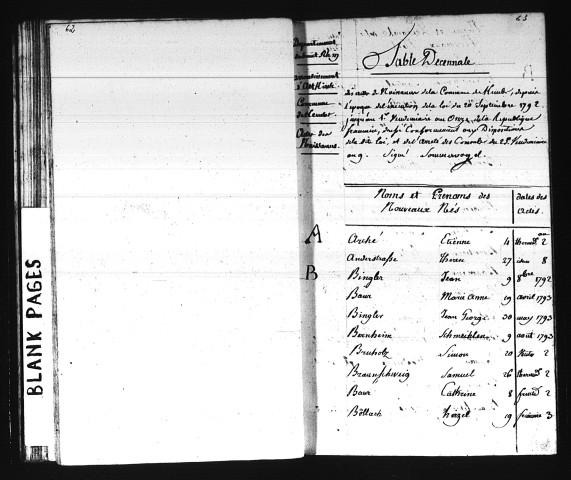 62
63
BLANK PAGES
Departement
du haut Rhin
arrondissement
d'Altkirch
Commune
Actes de
Naissances
Table Decennale
des actes de Naissance de la Commune de depuis
l'epoque de l'execution de la loi du 20 Septembre 1792
jusqu'au 1er Vendemiaire an Onze de la Republique
francaise, Conformement aux Dispositions
de la dite loi, et de l'arreté des Consuls du 25 Vendemiaire
an 9. Signé Sommervogel.
Noms et Prenoms des
Nouveaux Nés
dates des
Actes.
A
Arché Etienne 4 2
an
Anderstraße 27 8
B
Bingler Jean 9 8bre 1792
Baur Marie Anne 19 avril 1793
Bingler Jean George 30 may 1793
Bernheim Schmeihlen 9 août 1793
Bruholz Simon 20 2
Braunschweig Samuel 26 2
Baur Cathrine 8 2
Bollach Herzel 19 frimaire 3